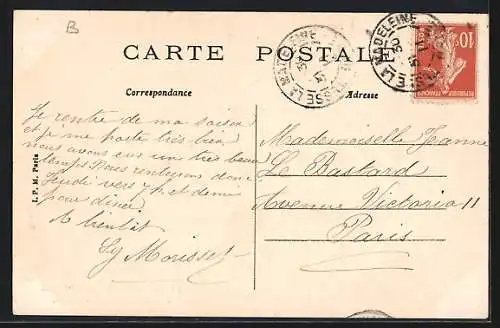 B
CARTE POSTALE
LA MADELEINE
LA MADELEINE
10
Correspondance
Adresse
Je rentre de ma saison
et je me porte très bien
nous avons eu un très beau
temps Nous rentrerons donc
Jeudi vers 7h et demi
pour dîner
A bientôt
Sy Morisset
Mademoiselle Jeanne
Le Bastard
Avenue Victoria 11
Paris
I. P. M. Paris